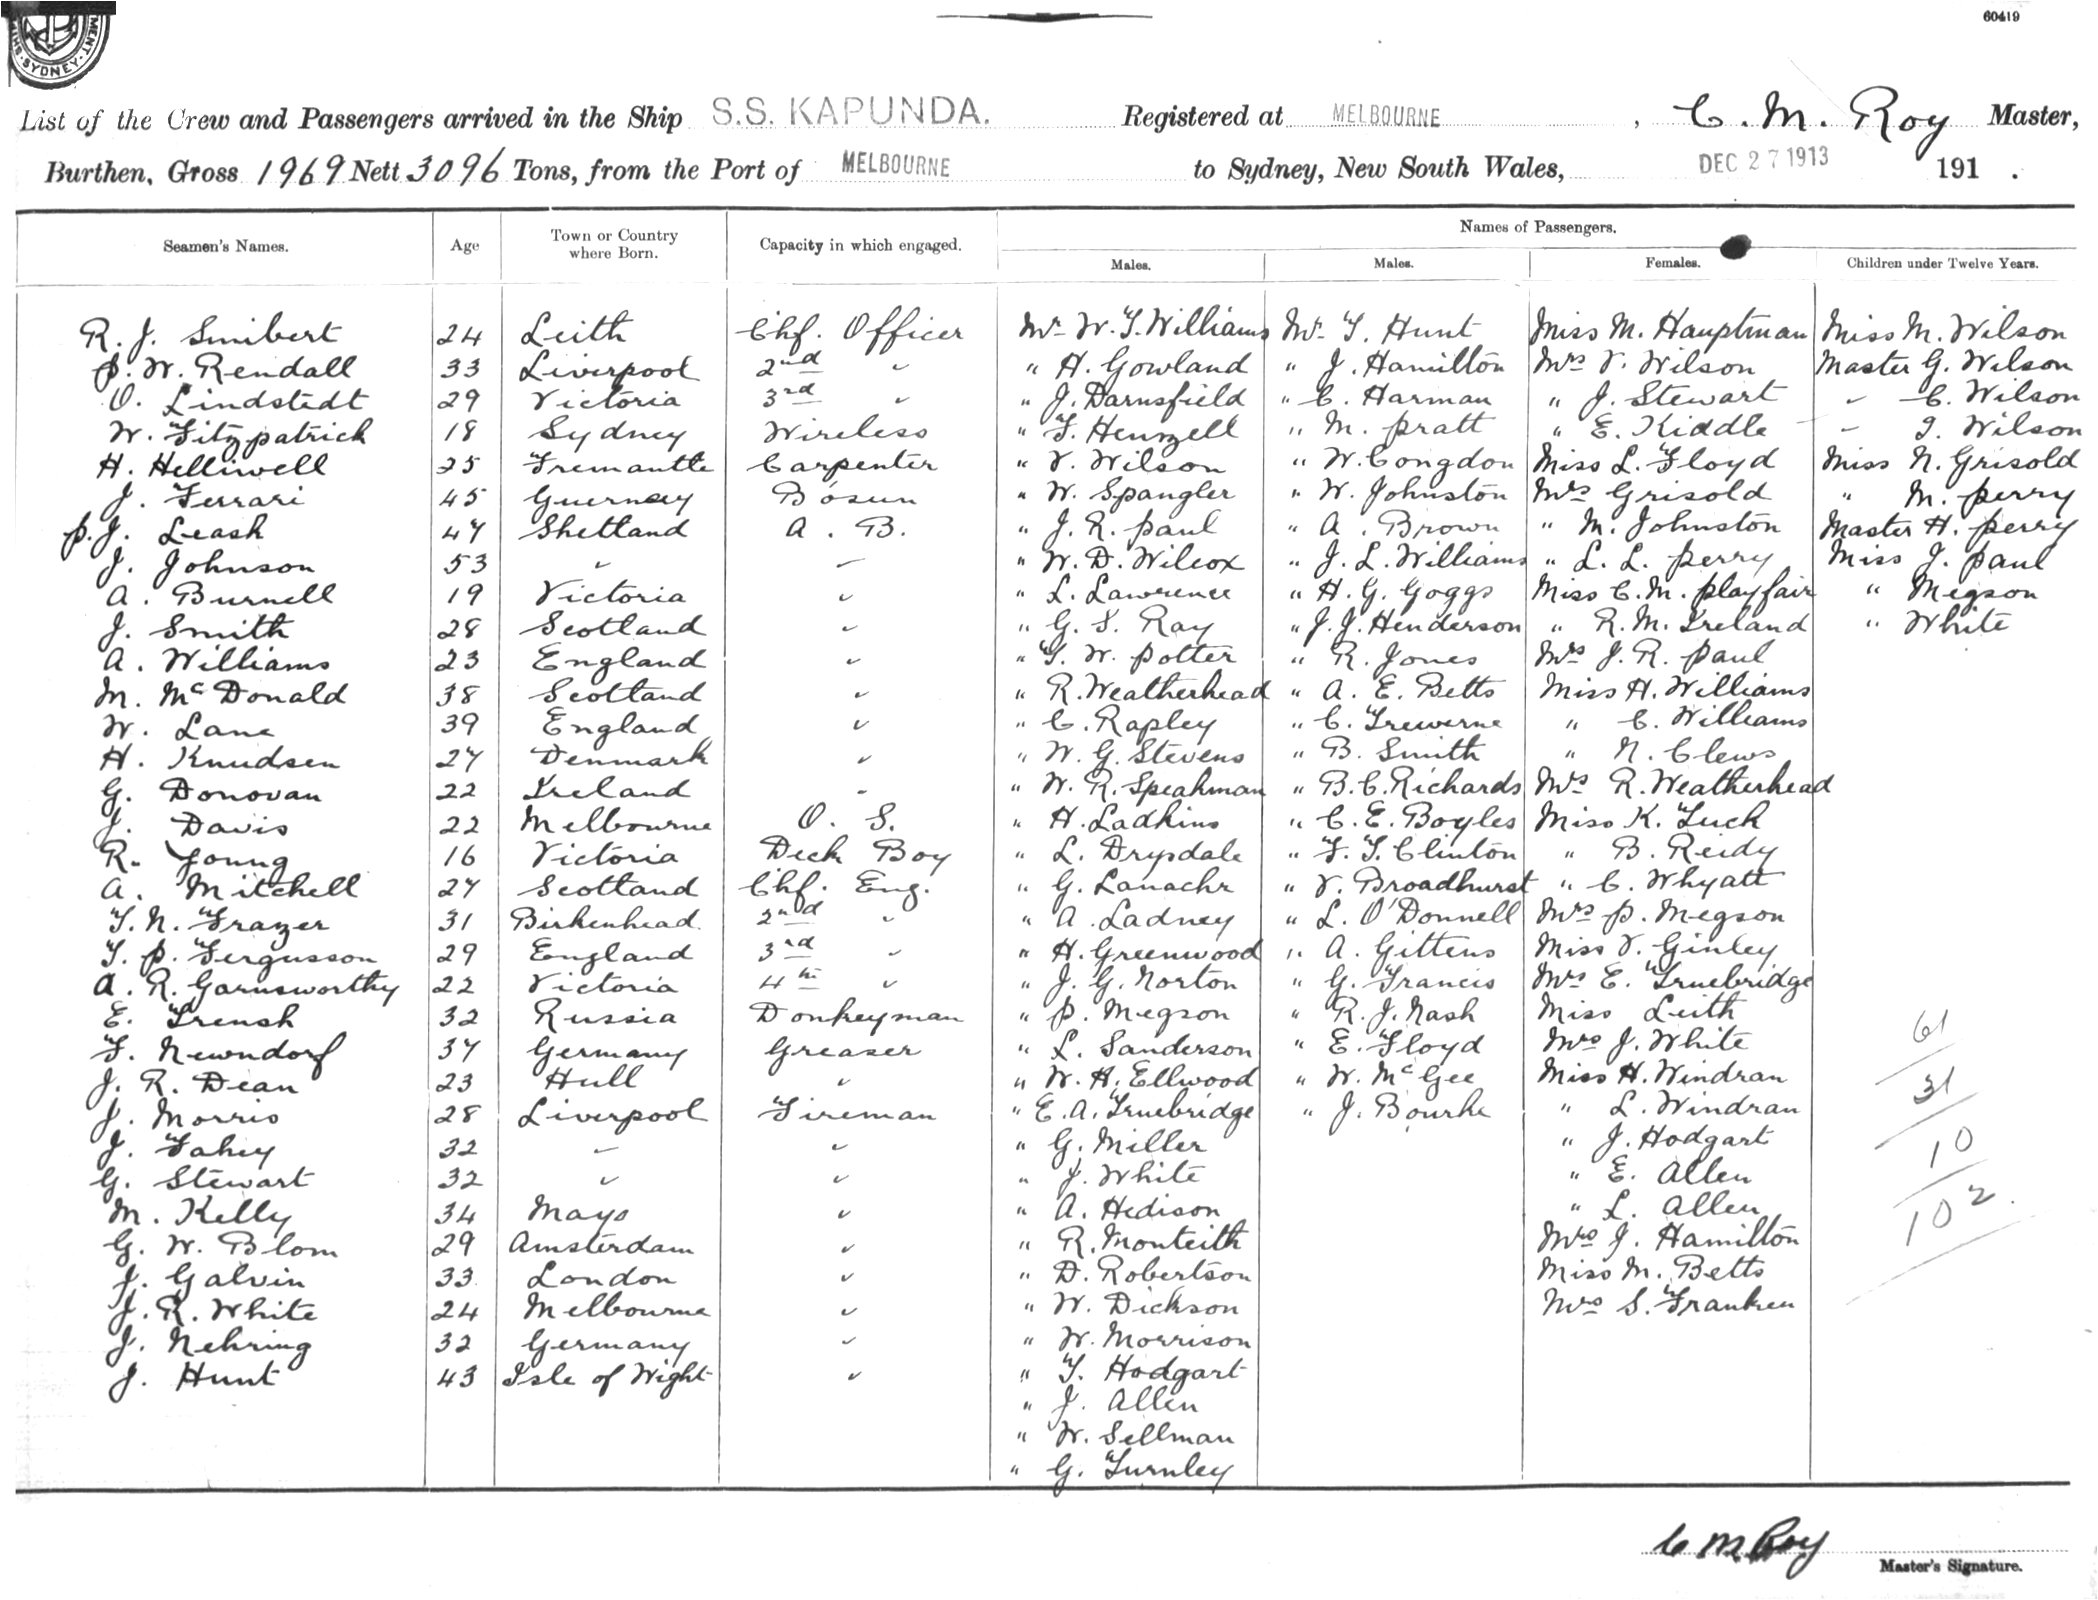 MENT. SYDNEY
60419
List of the Crew and Passengers arrived in the Ship S.S. KAPUNDA. Registered at MELBOURNE , C. M. Roy Master,
Burthen, Gross 1969 Nett 3096 Tons, from the Port of MELBOURNE to Sydney, New South Wales, DEC 27 1913 191 .
Seamen's Names. Age Town or Country where Born. Capacity in which engaged. Names of Passengers.
Males. Males. Females. Children under Twelve Years.
R. J. Smibert 24 Leith Chf. Officer Mr W. T. Williams Mr T. Hunt Miss M. Hauptman Miss M. Wilson
P. W. Rendall 33 Liverpool 2nd " " H. Gowland " J. Hamilton Mrs V. Wilson Master G. Wilson
O. Lindstedt 29 Victoria 3rd " " J. Darnsfield " C. Harman " J. Stewart " C. Wilson
W. Fitzpatrick 18 Sydney Wireless " T. Henzell " M. Pratt " E. Kiddle " I. Wilson
H. Helliwell 25 Fremantle Carpenter " V. Wilson " W. Congdon Miss L. Floyd Miss N. Grisold
J. Ferrari 45 Guernsey Bosun " W. Spangler " W. Johnston Mrs Grisold " M. Perry
P. J. Leask 47 Shetland A. B. " J. R. Paul " A. Brown " M. Johnston Master H. Perry
J. Johnson 53 " " " W. D. Wilcox " J. L. Williams " L. L. Perry Miss J. Paul
A. Burnell 19 Victoria " " L. Lawrence " H. G. Goggs Miss C. M. Playfair " Megson
J. Smith 28 Scotland " " G. S. Ray " J. J. Henderson " R. M. Ireland " White
A. Williams 23 England " " T. W. Potter " R. Jones Mrs J. R. Paul
M. McDonald 38 Scotland " " R. Weatherhead " A. E. Betts Miss H. Williams
W. Lane 39 England " " C. Rapley " C. Trewerne " C. Williams
H. Knudsen 27 Denmark " " W. G. Stevens " B. Smith " N. Clews
G. Donovan 22 Ireland " " W. R. Speakman " B. C. Richards Mrs R. Weatherhead
J. Davis 22 Melbourne O. S. " H. Ladkins " C. E. Boyles Miss K. Tuck
R. Young 16 Victoria Deck Boy " L. Drysdale " F. T. Clinton " B. Reidy
A. Mitchell 27 Scotland Chf. Eng. " G. Lanachr " V. Broadhurst " C. Whyatt
T. N. Frazer 31 Birkenhead 2nd " " A. Ladney " L. O'Donnell Mrs P. Megson
T. P. Fergusson 29 England 3rd " " H. Greenwood " A. Gittens Miss V. Ginley
A. R. Garnsworthy 22 Victoria 4th " " J. G. Norton " G. Francis Mrs E. Truebridge
E. Trensh 32 Russia Donkeyman " P. Megson " R. J. Nash Miss Leith
F. Newndorf 37 Germany Greaser " L. Sanderson " E. Floyd Mrs J. White
J. R. Dean 23 Hull " " W. H. Ellwood " W. McGee Miss H. Windran
J. Morris 28 Liverpool Fireman " E. A. Truebridge " J. Bourke " L. Windran
J. Fahey 32 " " " G. Miller " J. Hodgart
G. Stewart 32 " " " J. White " E. Allen
M. Kelly 34 Mayo " " A. Hedison " L. Allen
G. W. Blom 29 Amsterdam " " R. Monteith Mrs J. Hamilton
J. Galvin 33 London " " D. Robertson Miss M. Betts
J. R. White 24 Melbourne " " W. Dickson Mrs S. Franken
J. Nehring 32 Germany " " W. Morrison
J. Hunt 43 Isle of Wight " " T. Hodgart
" J. Allen
" W. Sellman
" G. Turnley
61
31
10
102
C M Roy
Master's Signature.